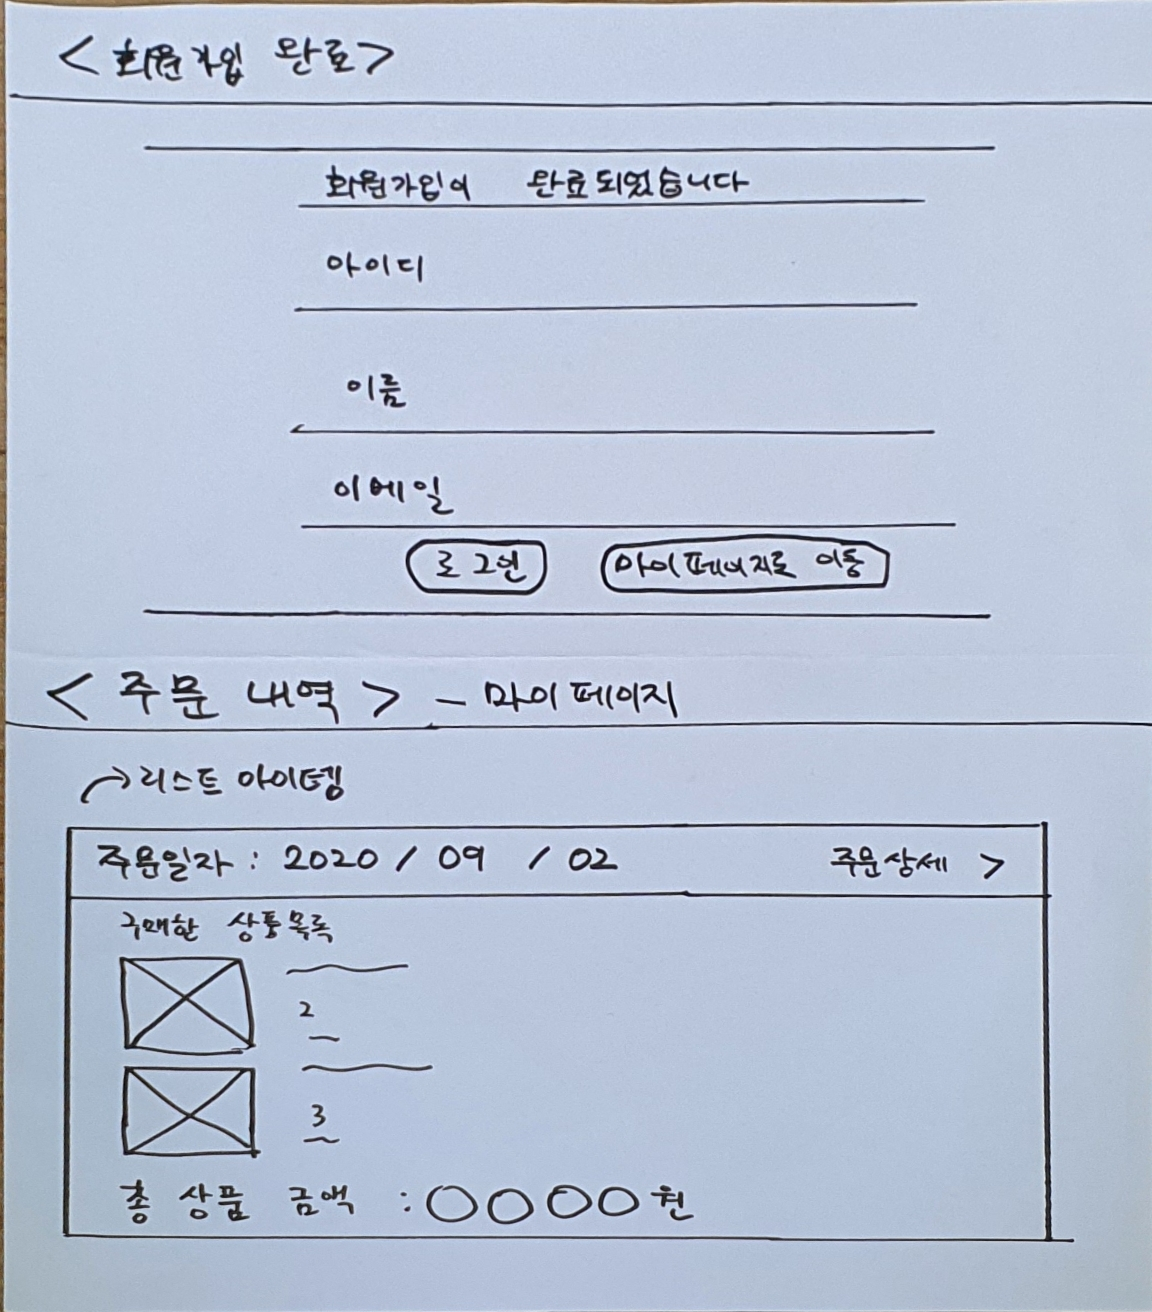 <회원가입 완료>
회원가입이 완료되었습니다
아이디
이름
이메일
로그인 마이페이지로 이동
<주문 내역> - 마이페이지
→리스트 아이템
주문일자 : 2020 / 09 / 02 주문상세 >
구매한 상품목록
2
3
총 상품 금액 : ○○○○원